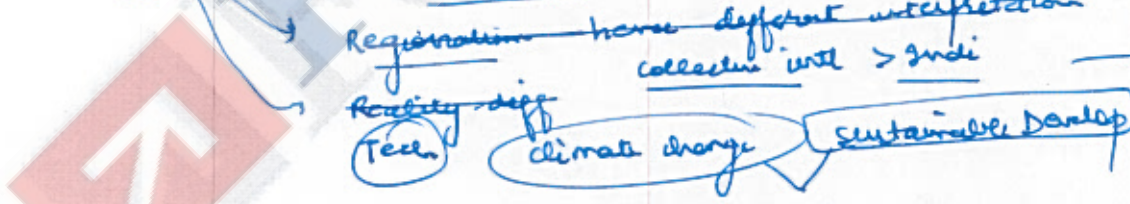 Regionalism have different interpretation
collective intl > Indi
Reality diff
Tech climate change sustainable Develop